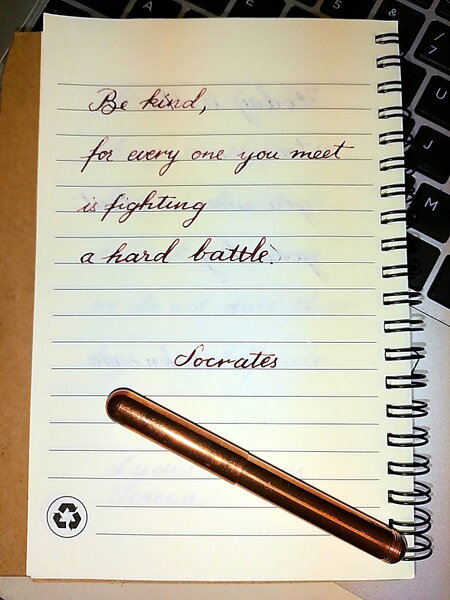 Be kind,
for every one you meet
is fighting
a hard battle.
Socrates
Seneca
A
5
&
7
U
J
M